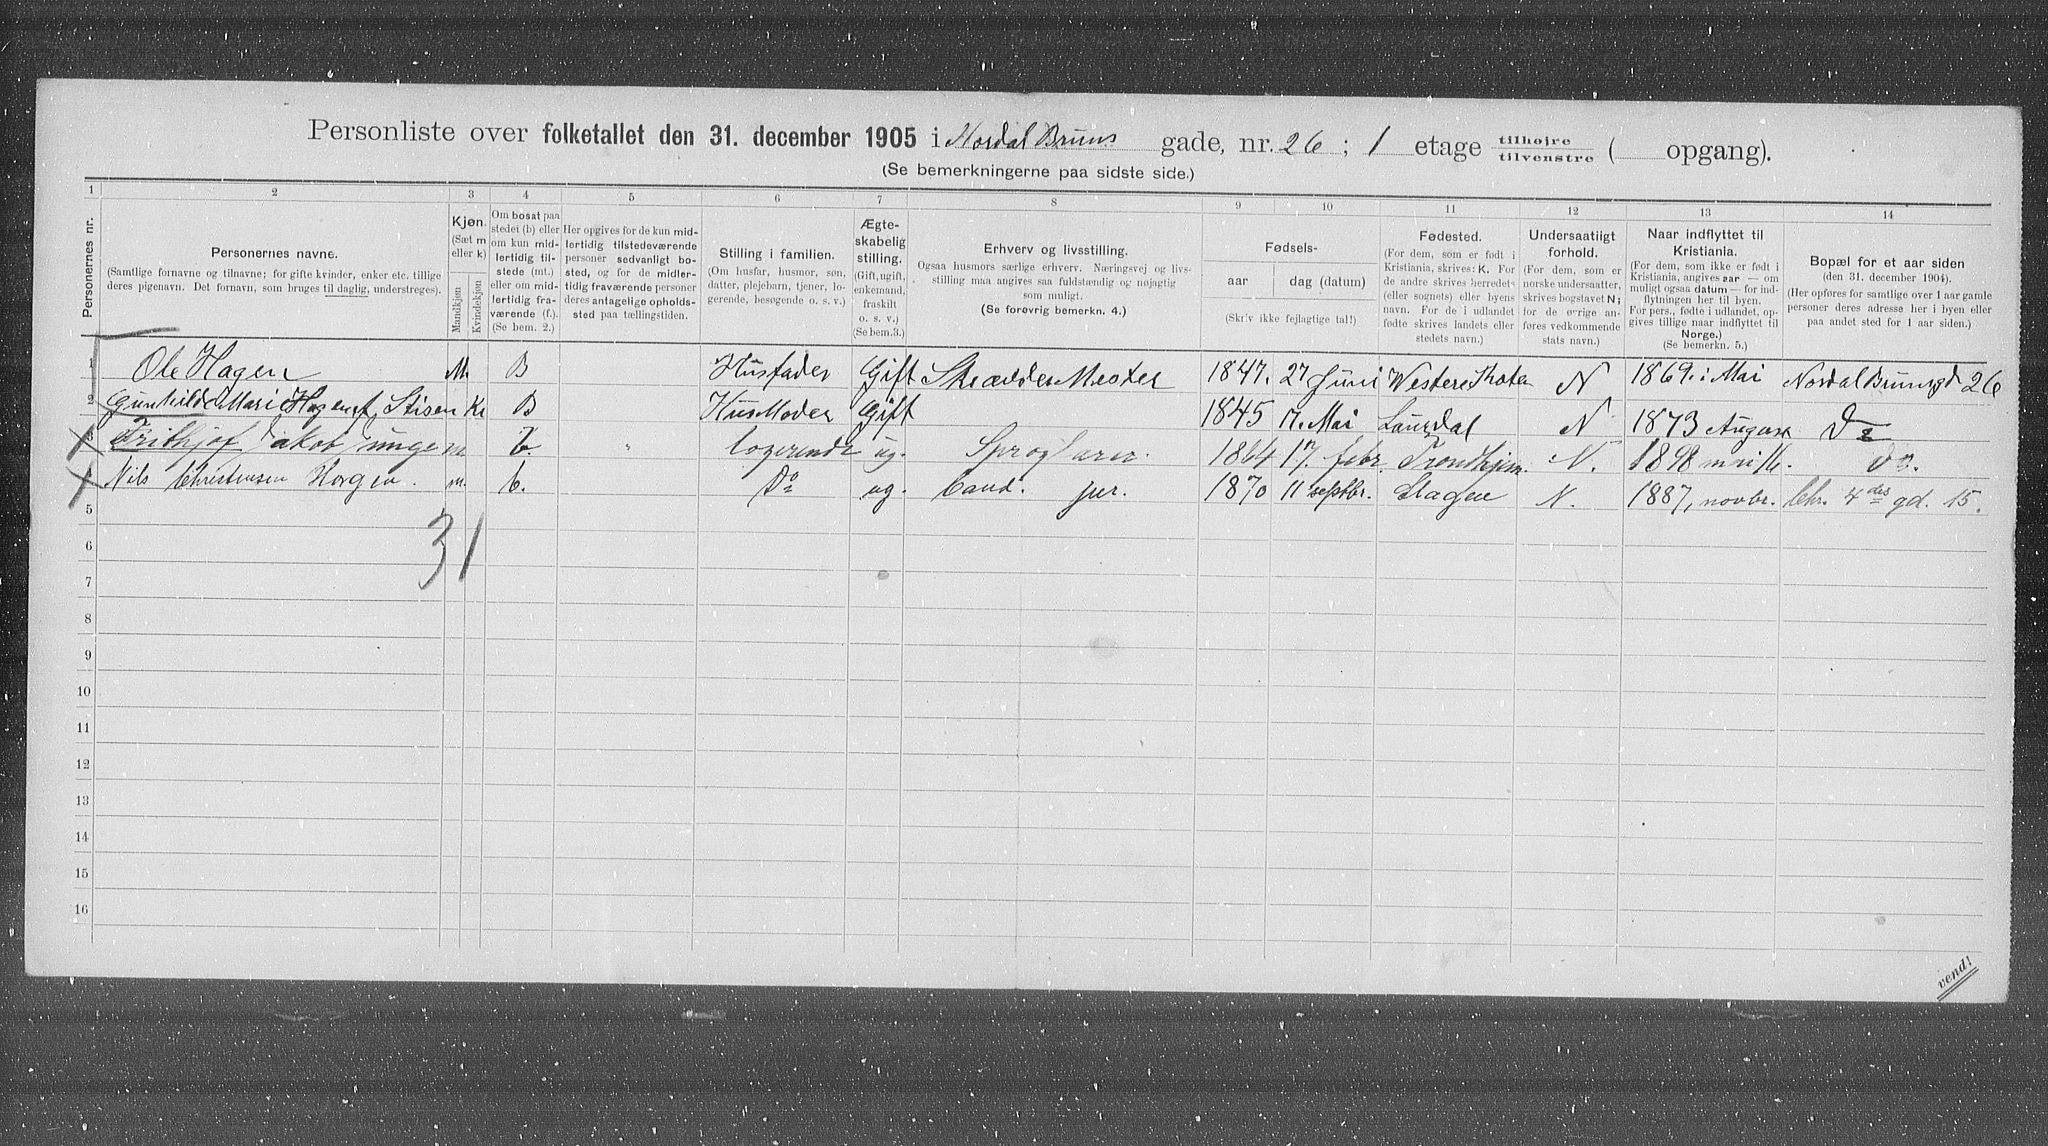 Personliste over folketallet den 31. december 1905 i Nordal Bruns gade, nr. 26 ; 1 etage tilhøire tilvenstre ( opgang).
(Se bemerkningerne paa sidste side.)
1 2 3 4 5 6 7 8 9 10 11 12 13 14
Personernes nr.
Personernes navne.
(Samtlige fornavne og tilnavne; for gifte kvinder, enker etc. tillige deres pigenavn. Det fornavn, som bruges til daglig, understreges).
Kjøn. (Sæt m eller k)
Mandkjøn
Kvindekjøn
Om bosat paa stedet (b) eller om kun midlertidig tilstede (mt.) eller om midlertidig fraværende (f.). (Se bem. 2.)
Her opgives for de kun midlertidig tilstedeværende personer sedvanligt bosted, og for de midlertidig fraværende personer deres antagelige opholdssted paa tællingstiden.
Stilling i familien.
(Om husfar, husmor, søn, datter, plejebarn, tjener, logerende, besøgende o. s. v.)
Ægteskabelig stilling.
(Gift, ugift, enkemand, fraskilt o. s. v.) (Se bem. 3.)
Erhverv og livsstilling.
Ogsaa husmors særlige erhverv. Næringsvej og livsstilling maa angives saa fuldstændig og nøjagtig som muligt.
(Se forøvrig bemerkn. 4.)
Fødsels-
aar dag (datum)
(Skriv ikke fejlagtige tal!)
Fødested.
(For dem, som er født i Kristiania, skrives: K. For de andre skrives herredets (eller sognets) eller byens navn. For de i udlandet fødte skrives landets eller stedets navn.)
Undersaatligt forhold.
(For dem, som er norske undersaatter, skrives bogstavet N; for de øvrige anføres vedkommende stats navn.)
Naar indflyttet til Kristiania.
(For dem, som ikke er født i Kristiania, angives aar — om muligt ogsaa datum — for indflytningen her til byen. For pers., fødte i udlandet, opgives tillige naar indflyttet til Norge.)
(Se bemerkn. 5.)
Bopæl for et aar siden
(den 31. december 1904).
(Her opføres for samtlige over 1 aar gamle personer deres adresse her i byen eller paa andet sted for 1 aar siden.)
1 Ole Hagen M B Husfader Gift Skrædder Mester 1847. 27 Juni Westere Thoten N 1869. i Mai Nordal Brunsgd 26
2 Gunhilde Mari Hagen f. Stisen K B Hus Moder Gift 1845 Mai N 1873 August Do
3 Frithjof Jakob Junge m b " logerende ug. Sproglærer. 1864 17. febr. Trondhjem. N. 1898 Do.
4 Nils Christensen Horgen. m. b. Do ug. Cand. jur. 1870 11 septbr. Slagen N. 1887, novbr. Chr. 4des gd. 15.
5
31
6
7
8
9
10
11
12
13
14
15
16
vend!